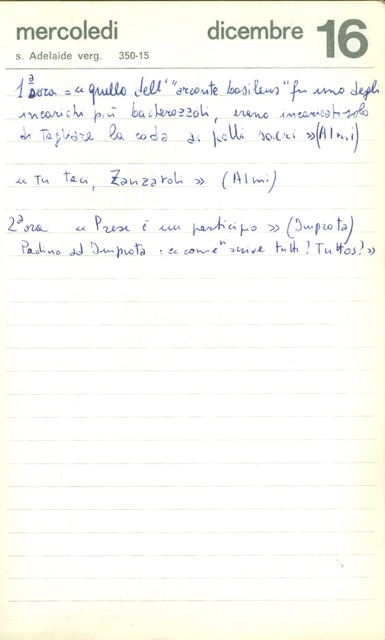 mercoledi dicembre 16
s. Adelaide verg. 350-15
1ª ora = « quello dell' "arconte basileus" fu uno degli
incarichi più bacherozzoli, erano incaricati solo
di tagliare la coda ai polli sacri » (Almi)
« Tu taci, Zanzaroli » (Almi)
2ª ora « Prese è un participio » (Improta)
Padino ad Improta : « com'è scrive tutti? Tuttos? »